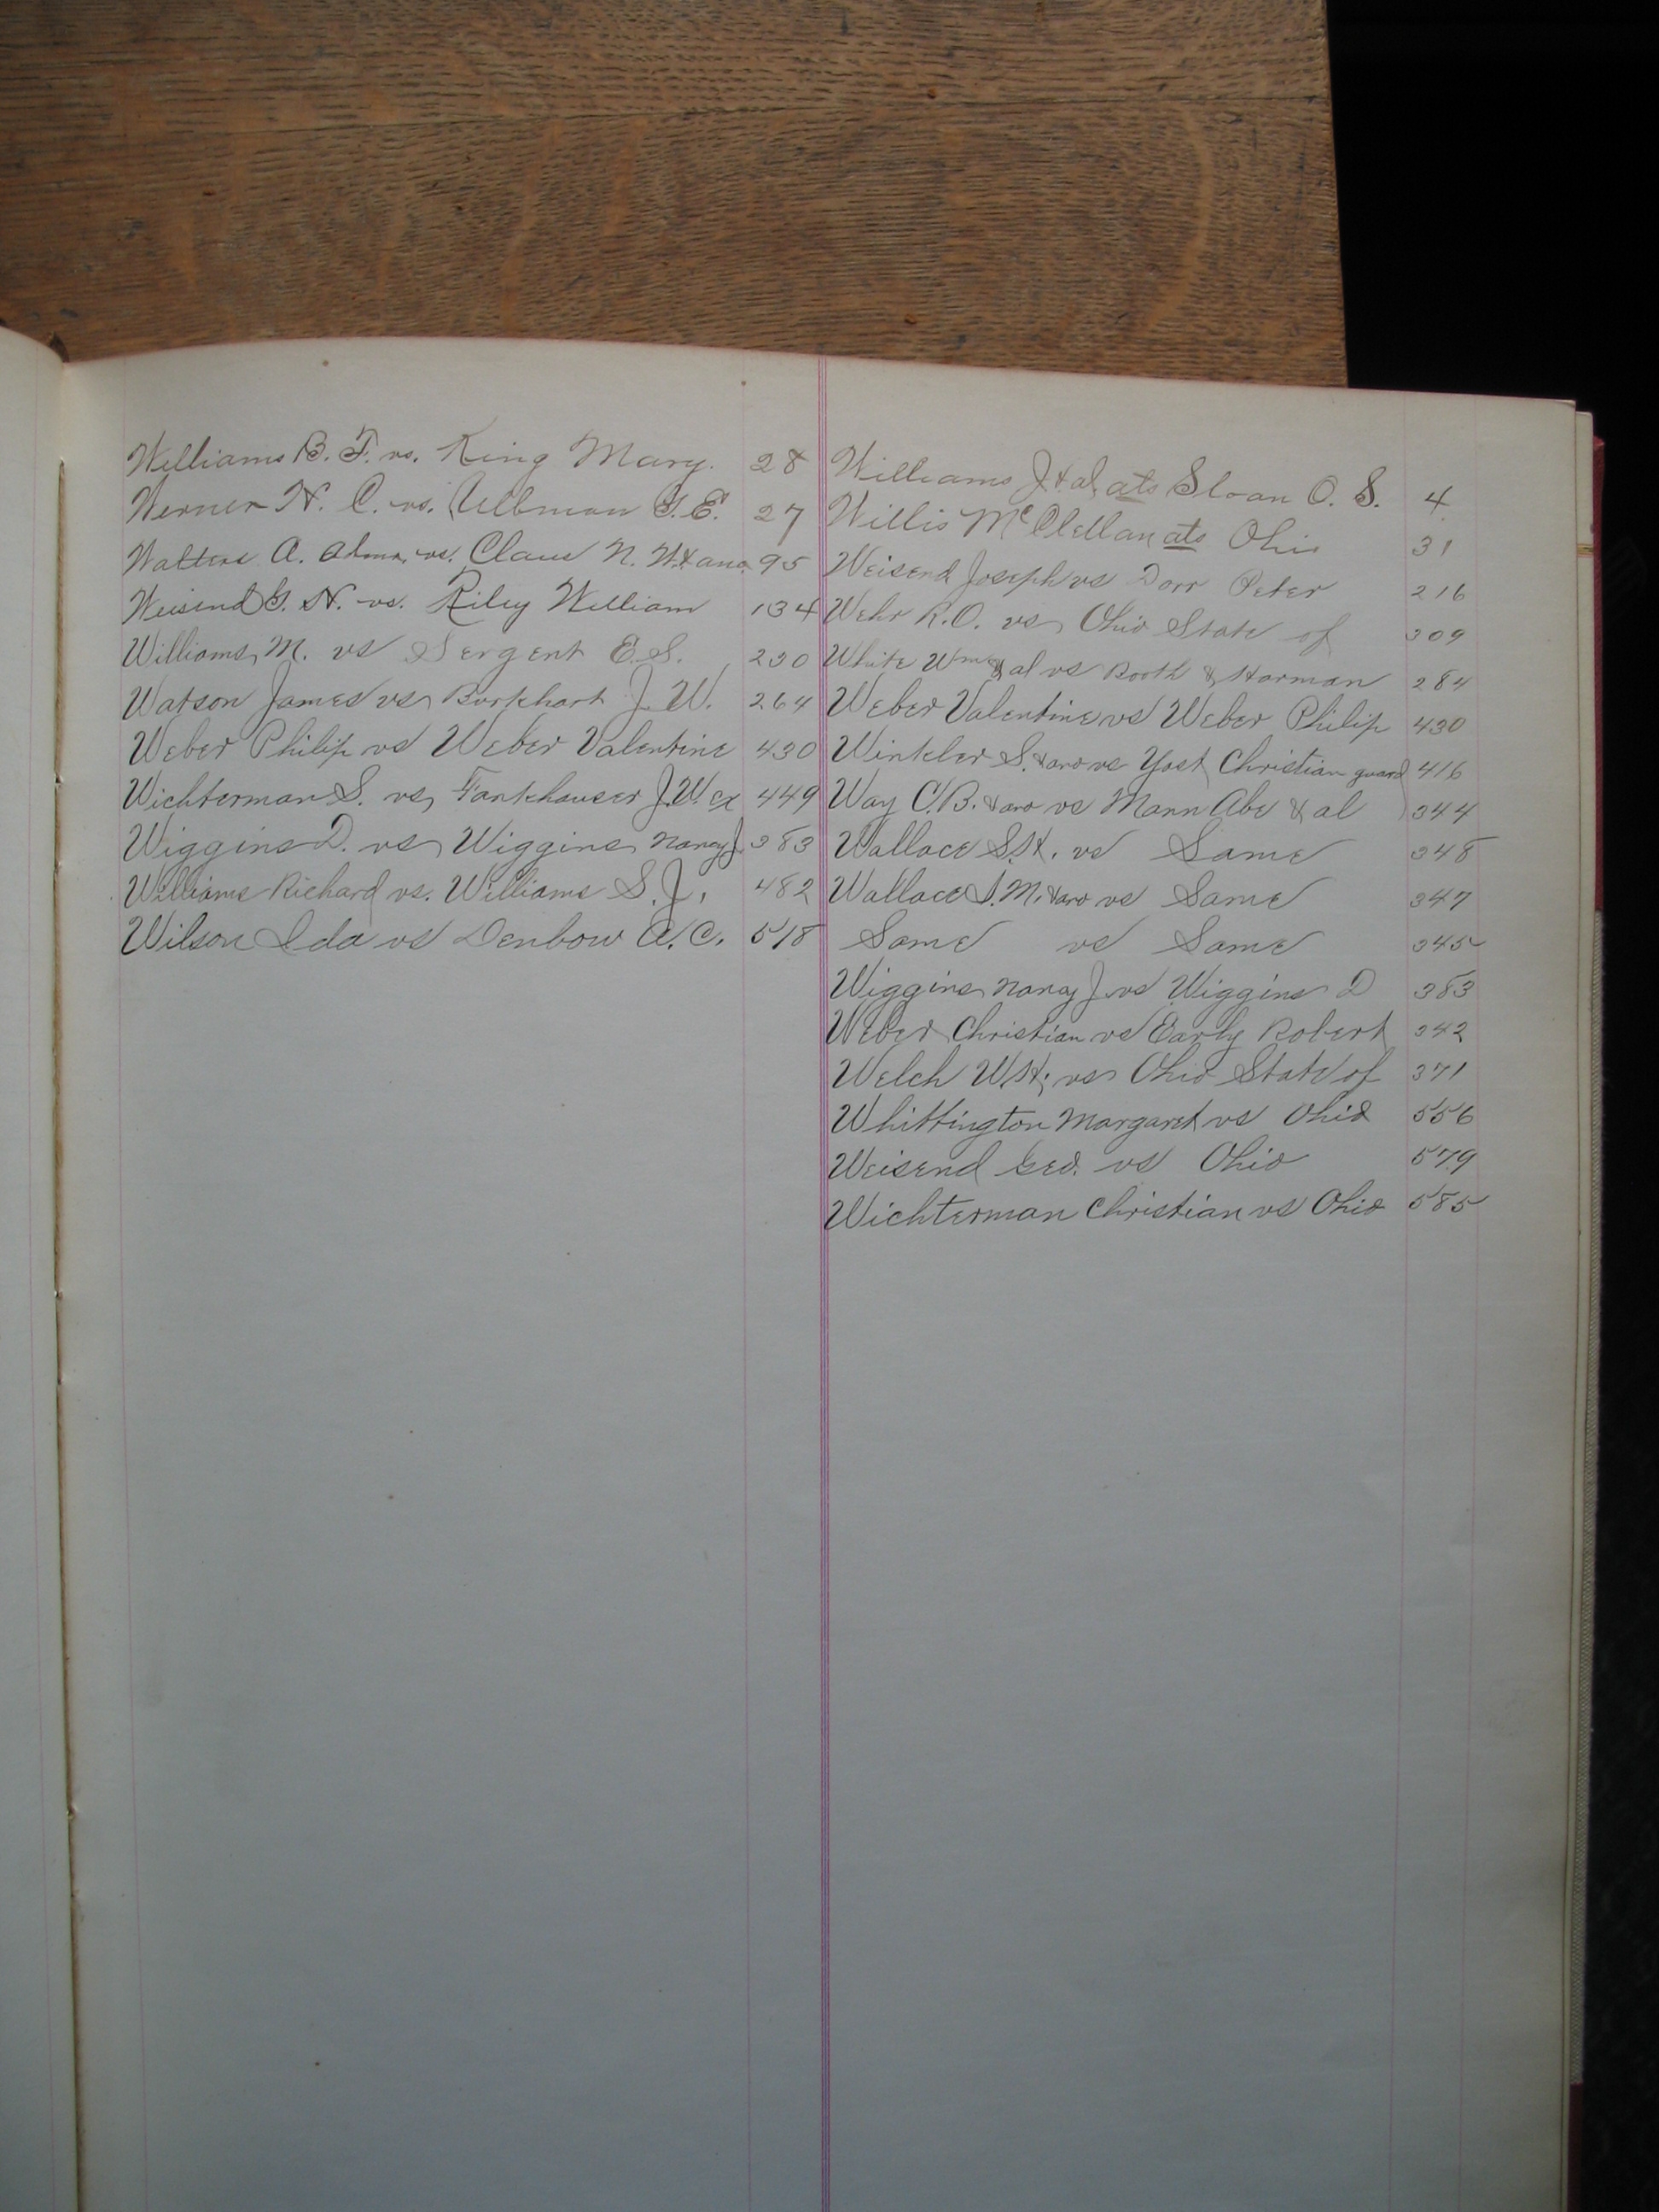 Williams B. F. vs. King Mary. 28
Werner H. C. vs. Ullman G. E. 27
Walters A. Alma vs. Claus N. W. & ano 95
Weisend G. N. vs. Riley William 134
Williams M. vs Sergent E. S. 230
Watson James vs Burkhart J. W. 264
Weber Philip vs Weber Valentine 430
Wichterman S. vs Fankhauser J. W. ex 449
Wiggins D. vs Wiggins Nancy J. 383
Williams Richard vs. Williams S. J. 482
Wilson Ida vs Denbow A. C. 518
Williams J & al, ats Sloan O. S. 4
Willis McClellan ats Ohio 31
Weisend Joseph vs Dorr Peter 216
Wehr R. O. vs Ohio State of 309
White Wm & al vs Booth & Harman 284
Weber Valentine vs Weber Philip 430
Winkler S. & ano vs Yost Christian guard 416
Way C. B. & ano vs Mann Abe & al 344
Wallace S. H. vs Same 348
Wallace S. M. & ano vs Same 347
Same vs Same 345
Wiggins Nancy J. vs Wiggins D 383
Weber Christian vs Early Robert 342
Welch W. H. vs Ohio State of 371
Whittington Margaret vs Ohio 556
Weisend Geo. vs Ohio 579
Wichterman Christian vs Ohio 585